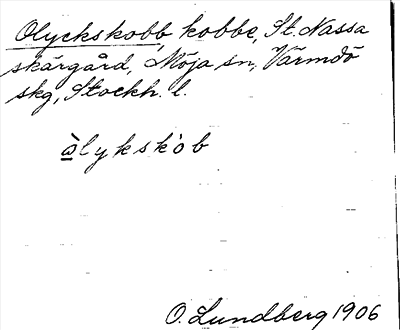 Olyckskobb, kobbe, St. Nassa
skärgård, Möja sn, Värmdö
skg, Stockh. l.
òlykskòb
O. Lundberg 1906